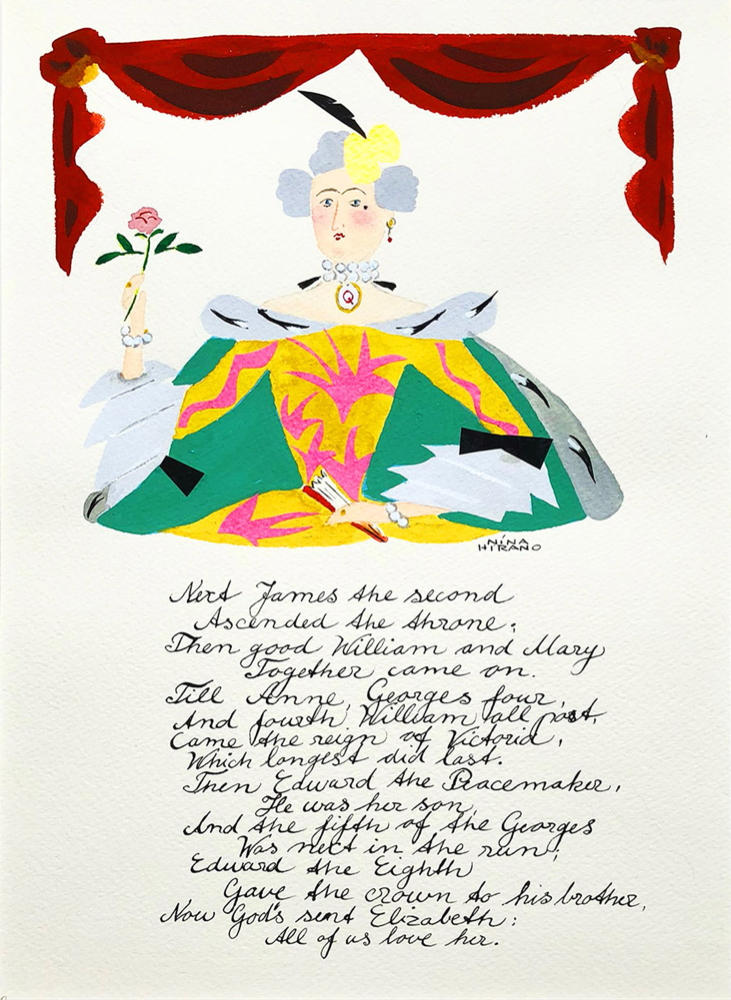 Q
NINA
HIRANO
Next James the second
Ascended the throne;
Then good William and Mary
Together came on.
Till Anne, Georges four,
And fourth William all past,
Came the reign of Victoria,
Which longest did last.
Then Edward the Peacemaker,
He was her son,
And the fifth of the Georges
Was next in the run;
Edward the Eighth
Gave the crown to his brother,
Now God's sent Elizabeth:
All of us love her.